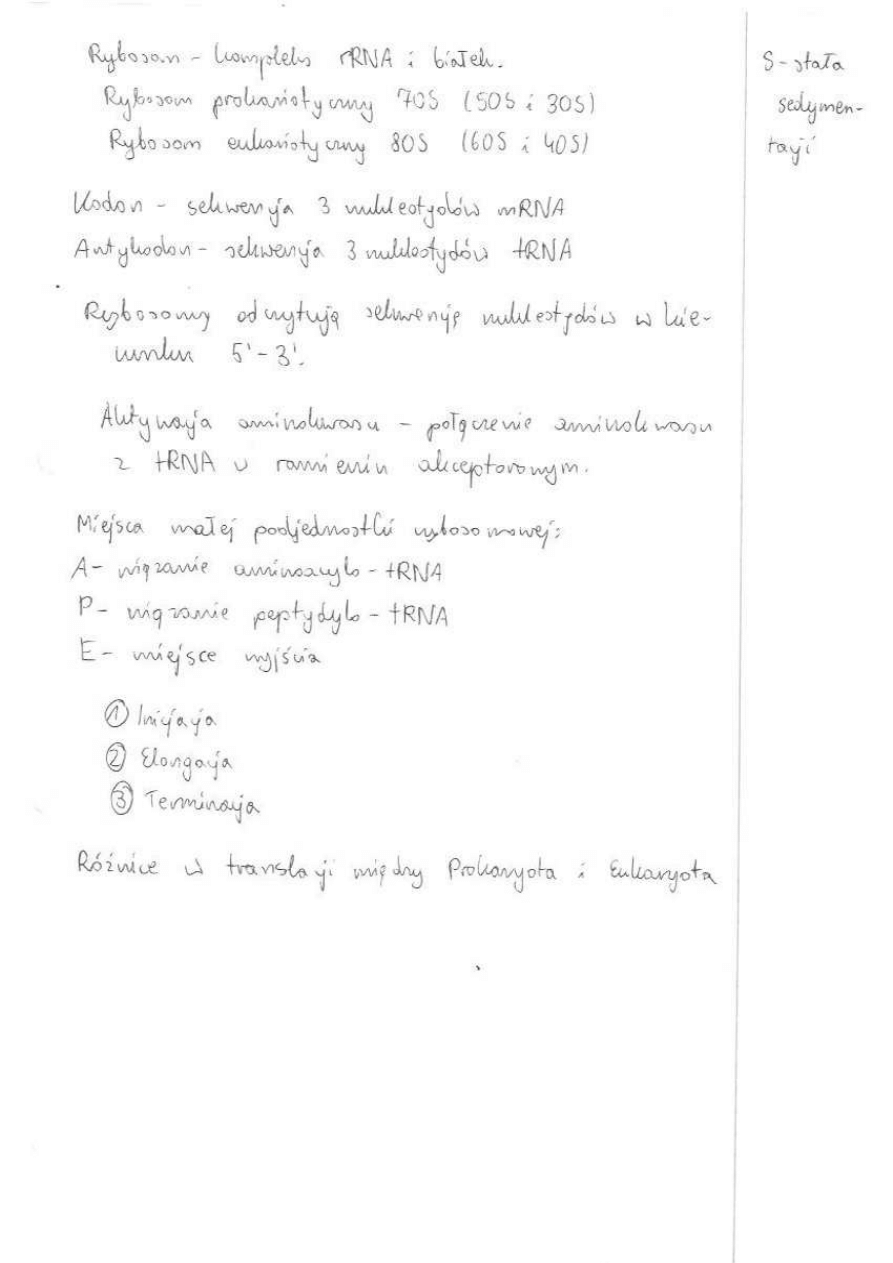 Rybosom - kompleks rRNA i białek.
Rybosom prokariotyczny 70S (50S i 30S)
Rybosom eukariotyczny 80S (60S i 40S)
Kodon - sekwencja 3 nukleotydów mRNA
Antykodon - sekwencja 3 nukleotydów tRNA
Rybosomy odczytują sekwencję nukleotydów w kie-
runku 5'-3'.
Aktywacja aminokwasu - połączenie aminokwasu
z tRNA w ramieniu akceptorowym.
Miejsca małej podjednostki rybosomowej:
A- wiązanie aminoacylo-tRNA
P- wiązanie peptydylo-tRNA
E- miejsce wyjścia
① Inicjacja
② Elongacja
③ Terminacja
Różnice w translacji między Prokaryota i Eukaryota
S-stała
sedymen-
tacji